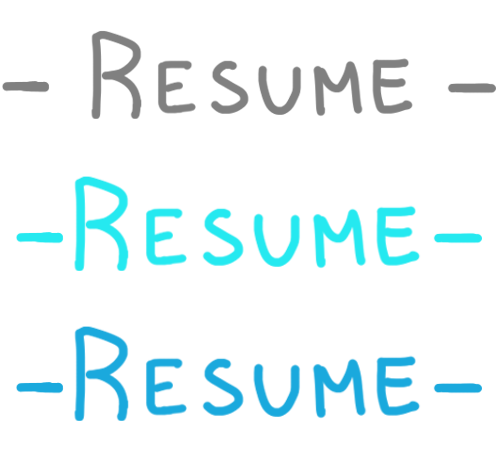 - RESUME -
-RESUME-
-RESUME-